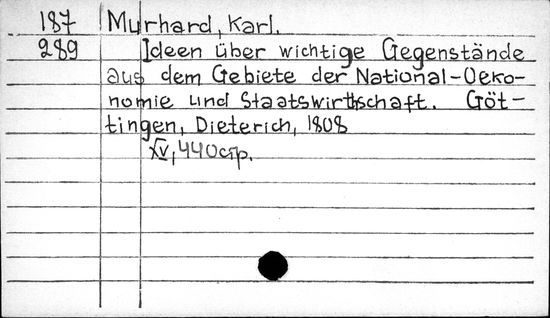 187 Murhard, Karl.
289 Ideen über wichtige Gegenstände
aus dem Gebiete der National-Oeko-
nomie und Staatswirthschaft. Göt-
tingen, Dieterich, 1808
XV, 440 стр.